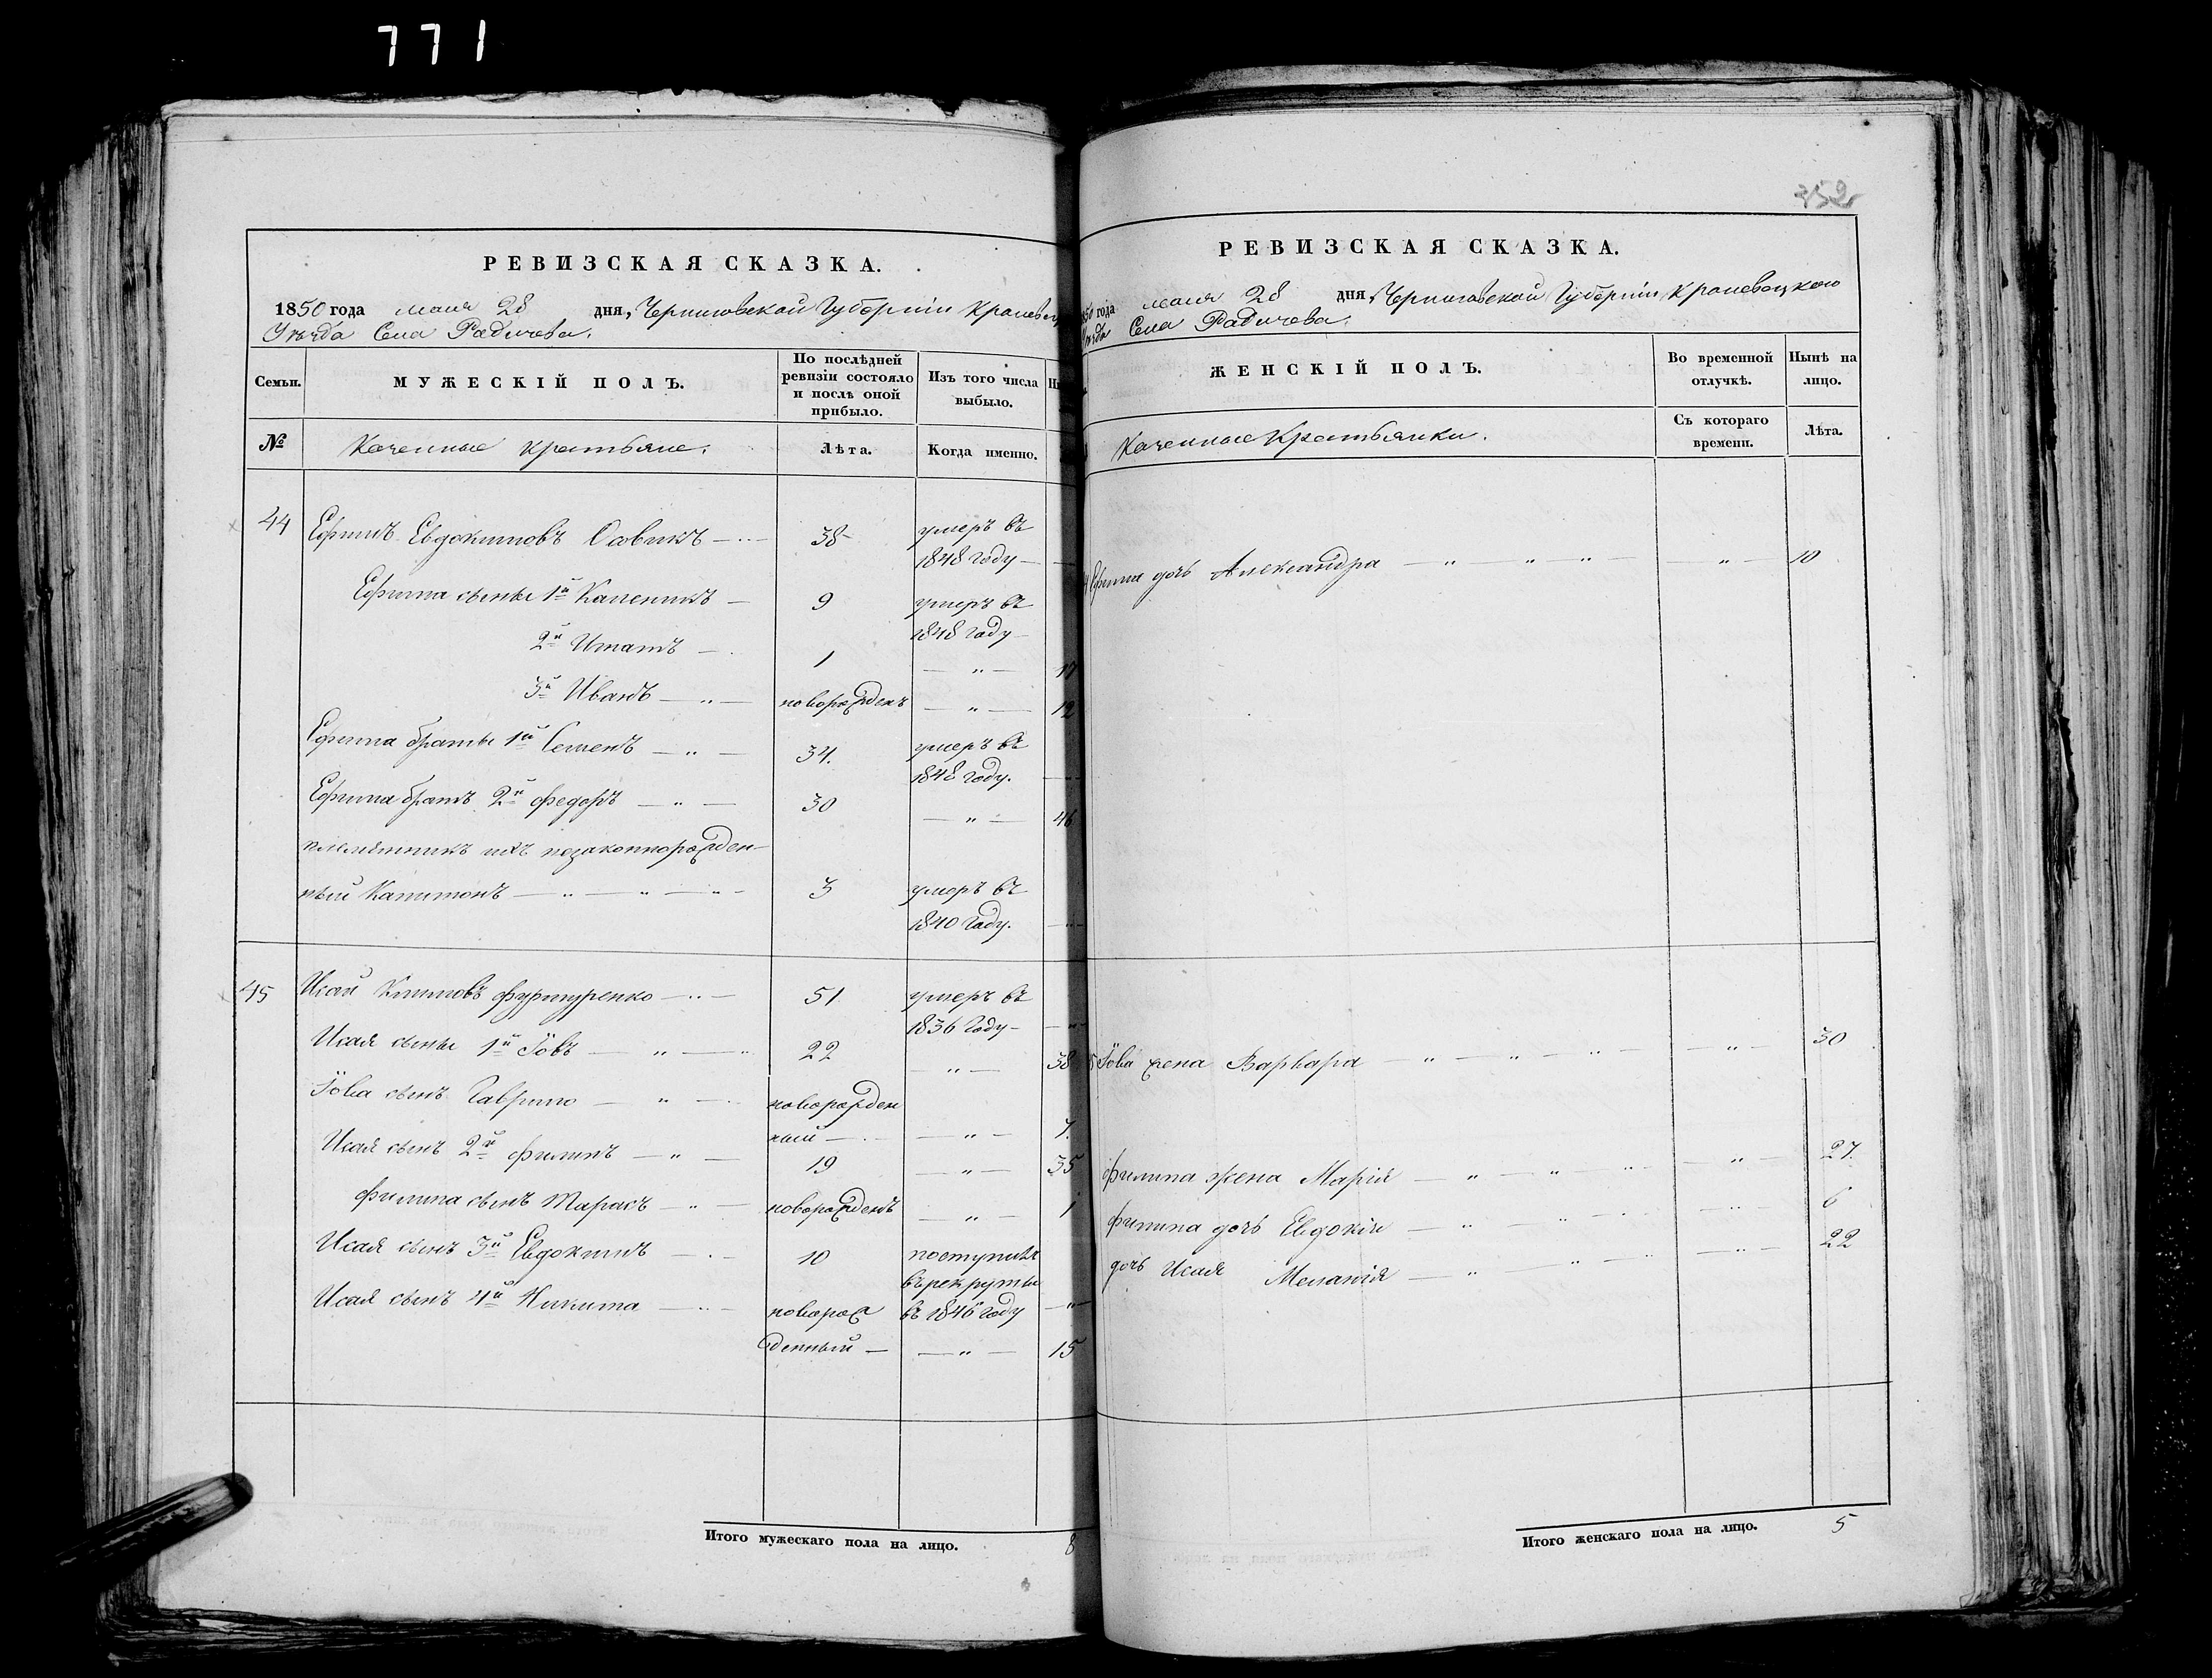 771
РЕВИЗСКАЯ СКАЗКА.
1850 года маия 28 дня, Черниговской Губерніи Кролевец
Уѣзда Села Радичева.
Семьи.
МУЖЕСКІЙ ПОЛЪ.
По послѣдней
ревизіи состояло
и послѣ оной
прибыло.
Изъ того числа
выбыло.
№
Казенные Крестьяне.
Лѣта.
Когда именно.
44 Ефимъ Евдокимовъ Совикъ 38 умеръ въ
1848 году
Ефима сыны 1й Каленикъ 9 умеръ въ
1848 году
2й Игнатъ 1 17
3й Иванъ новорожденъ 12
Ефима братья 1й Семенъ 34. умеръ въ
1848 году.
Ефима братъ 2й Федоръ 30 46
племянникъ ихъ незаконнорожден-
ный Капитонъ 3 умеръ въ
1840 году.
45 Исай Климовъ 51. умеръ въ
1836 году
Исая сыны 1й Іовъ 22 38
Іова сынъ Гаврило новорожден
ный 7.
Исая сынъ 2й Филипъ 19 35
Филипа сынъ Тарасъ новорожденъ 1
Исая сынъ 3й Евдокимъ 10 поступилъ
въ рекруты
Исая сынъ 4й Никита новорож въ 1846 году
денный 15
Итого мужескаго пола на лицо. 8
352
РЕВИЗСКАЯ СКАЗКА.
1850 года маия 28 дня, Черниговской Губерніи Кролевецкого
Уѣзда Села Радичева.
ЖЕНСКІЙ ПОЛЪ.
Во временной
отлучкѣ.
Нынѣ на
лицо.
Казенные Крестьянки.
Съ котораго
времени.
Лѣта.
Ефима дочь Александра 10
Іова жена Варвара 30
Филипа жена Марія 27.
Филипа дочь Евдокія 6
дочь Исая Меланія 22
Итого женскаго пола на лицо. 5